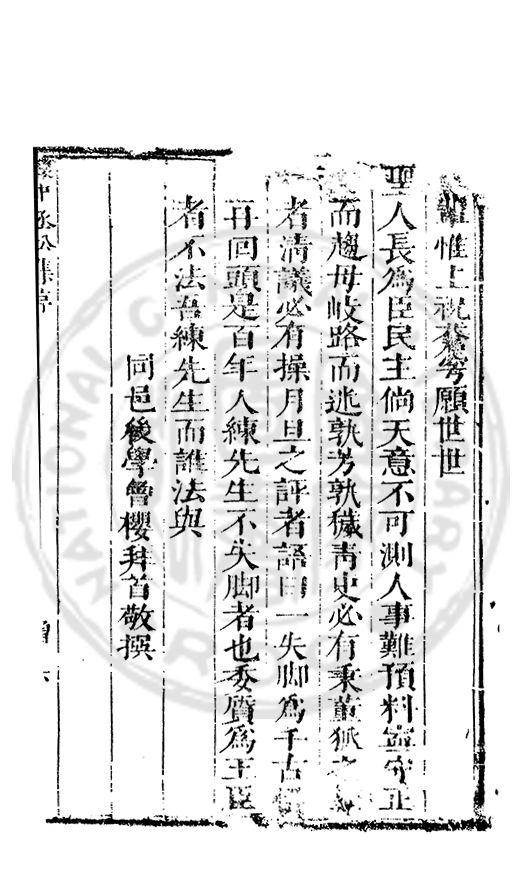 惟上祝蒼穹願世世
聖人長爲臣民主倘天意不可測人事難預料寧守正
而趨毋岐路而迷孰芳孰穢青史必有秉董狐之
者清議必有操月旦之評者語曰一失脚爲千古
再回頭是百年人練先生不失脚者也委質爲王臣
者不法吾練先生而誰法與
同邑後學曾櫻拜首敬撰
中丞公集序